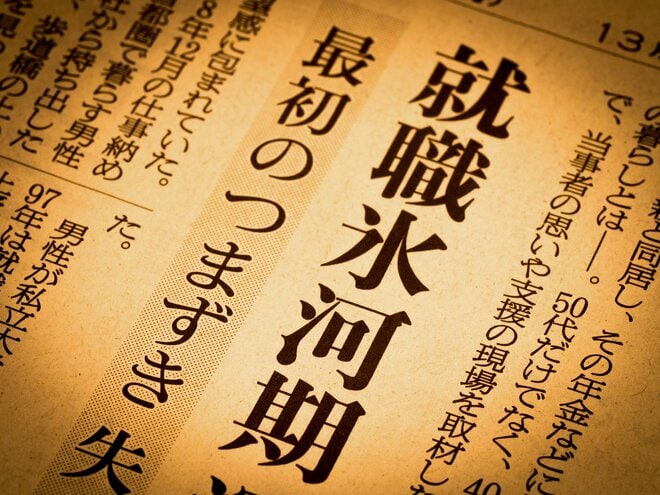 の暮らしとは――。
で、当事者の思いや支援の現場を取材した
50代だけでなく、40
親と同居し、その年金などに
就職氷河期
最初のつまずき 失
望感に包まれていた。
8年12月の仕事納め
首都圏で暮らす男性
社から持ち出した
、歩道橋の上
を見つ
た。
男性が私立大
97年は就職
13